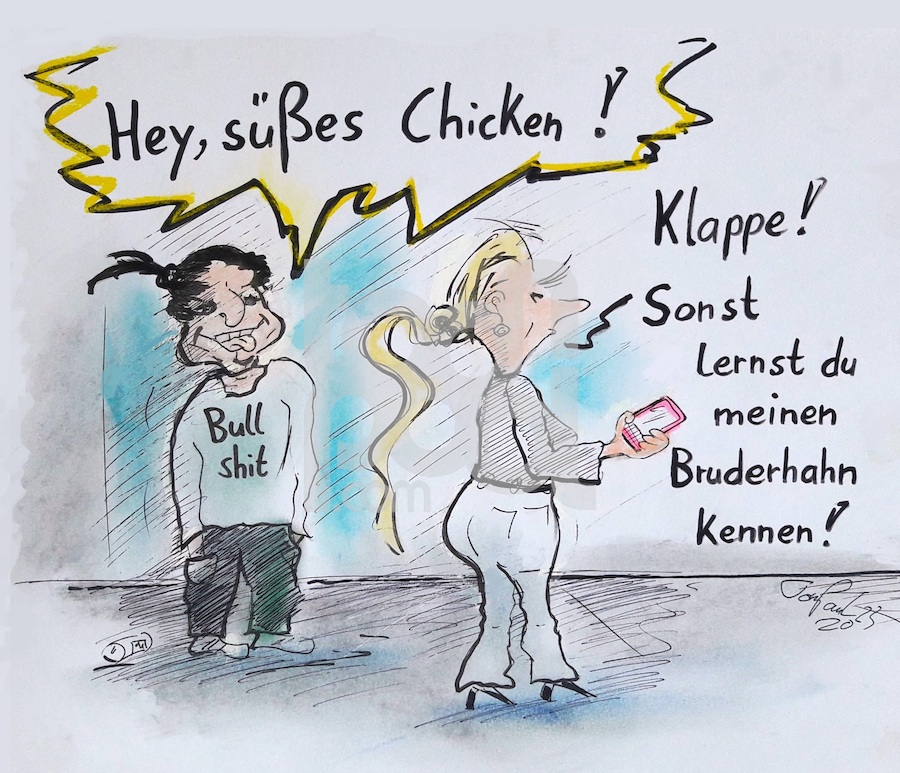 Hey, süßes Chicken!
Klappe!
Sonst
Lernst du
meinen
Bruderhahn
kennen!
Bull
shit